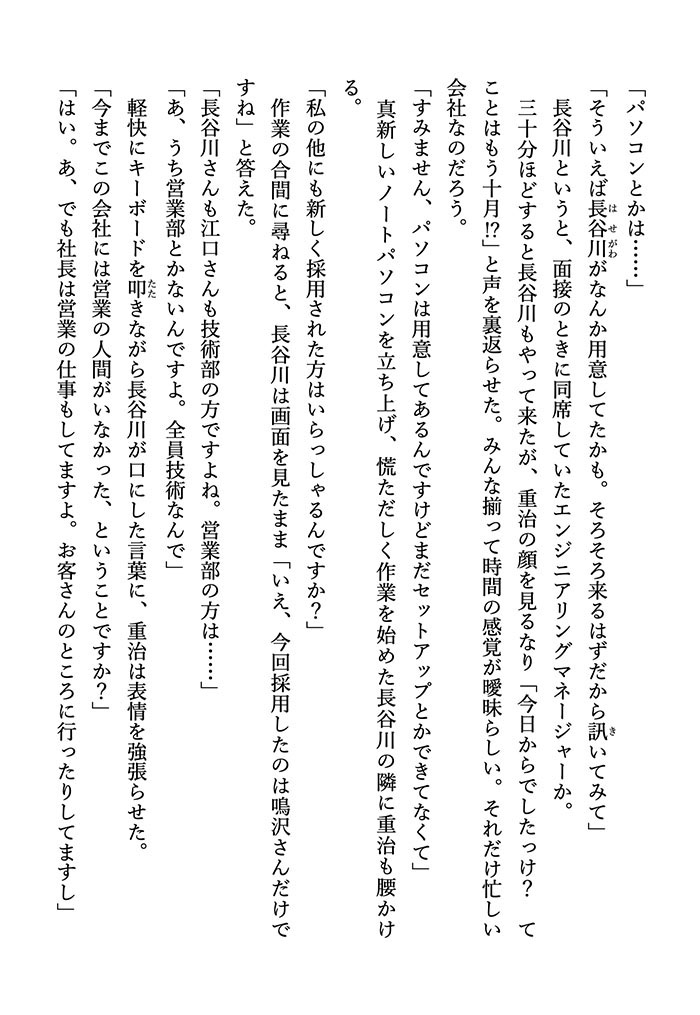 「パソコンとかは……」
「そういえば長谷川がなんか用意してたかも。そろそろ来るはずだから訊いてみて」
　長谷川というと、面接のときに同席していたエンジニアリングマネージャーか。
　三十分ほどすると長谷川もやって来たが、重治の顔を見るなり「今日からでしたっけ？　て
ことはもう十月!?」と声を裏返らせた。みんな揃って時間の感覚が曖昧らしい。それだけ忙しい
会社なのだろう。
「すみません、パソコンは用意してあるんですけどまだセットアップとかできてなくて」
　真新しいノートパソコンを立ち上げ、慌ただしく作業を始めた長谷川の隣に重治も腰かけ
る。
「私の他にも新しく採用された方はいらっしゃるんですか？」
　作業の合間に尋ねると、長谷川は画面を見たまま「いえ、今回採用したのは鳴沢さんだけで
すね」と答えた。
「長谷川さんも江口さんも技術部の方ですよね。営業部の方は……」
「あ、うち営業部とかないんですよ。全員技術なんで」
　軽快にキーボードを叩きながら長谷川が口にした言葉に、重治は表情を強張らせた。
「今までこの会社には営業の人間がいなかった、ということですか？」
「はい。あ、でも社長は営業の仕事もしてますよ。お客さんのところに行ったりしてますし」